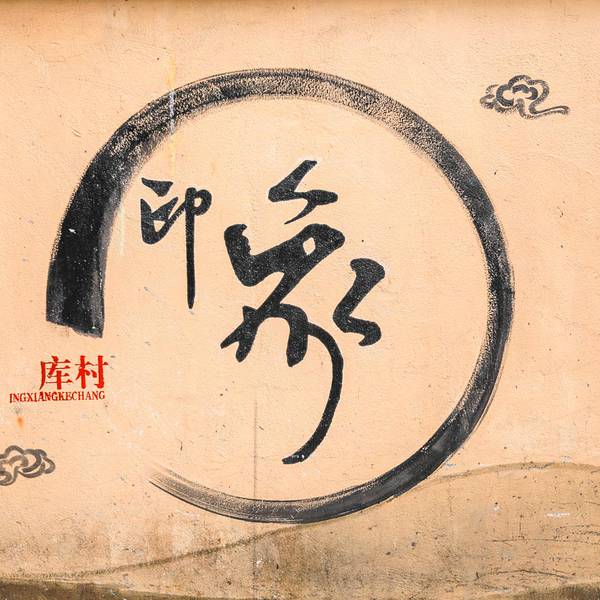 印象
库村
INGXIANGKECHANG